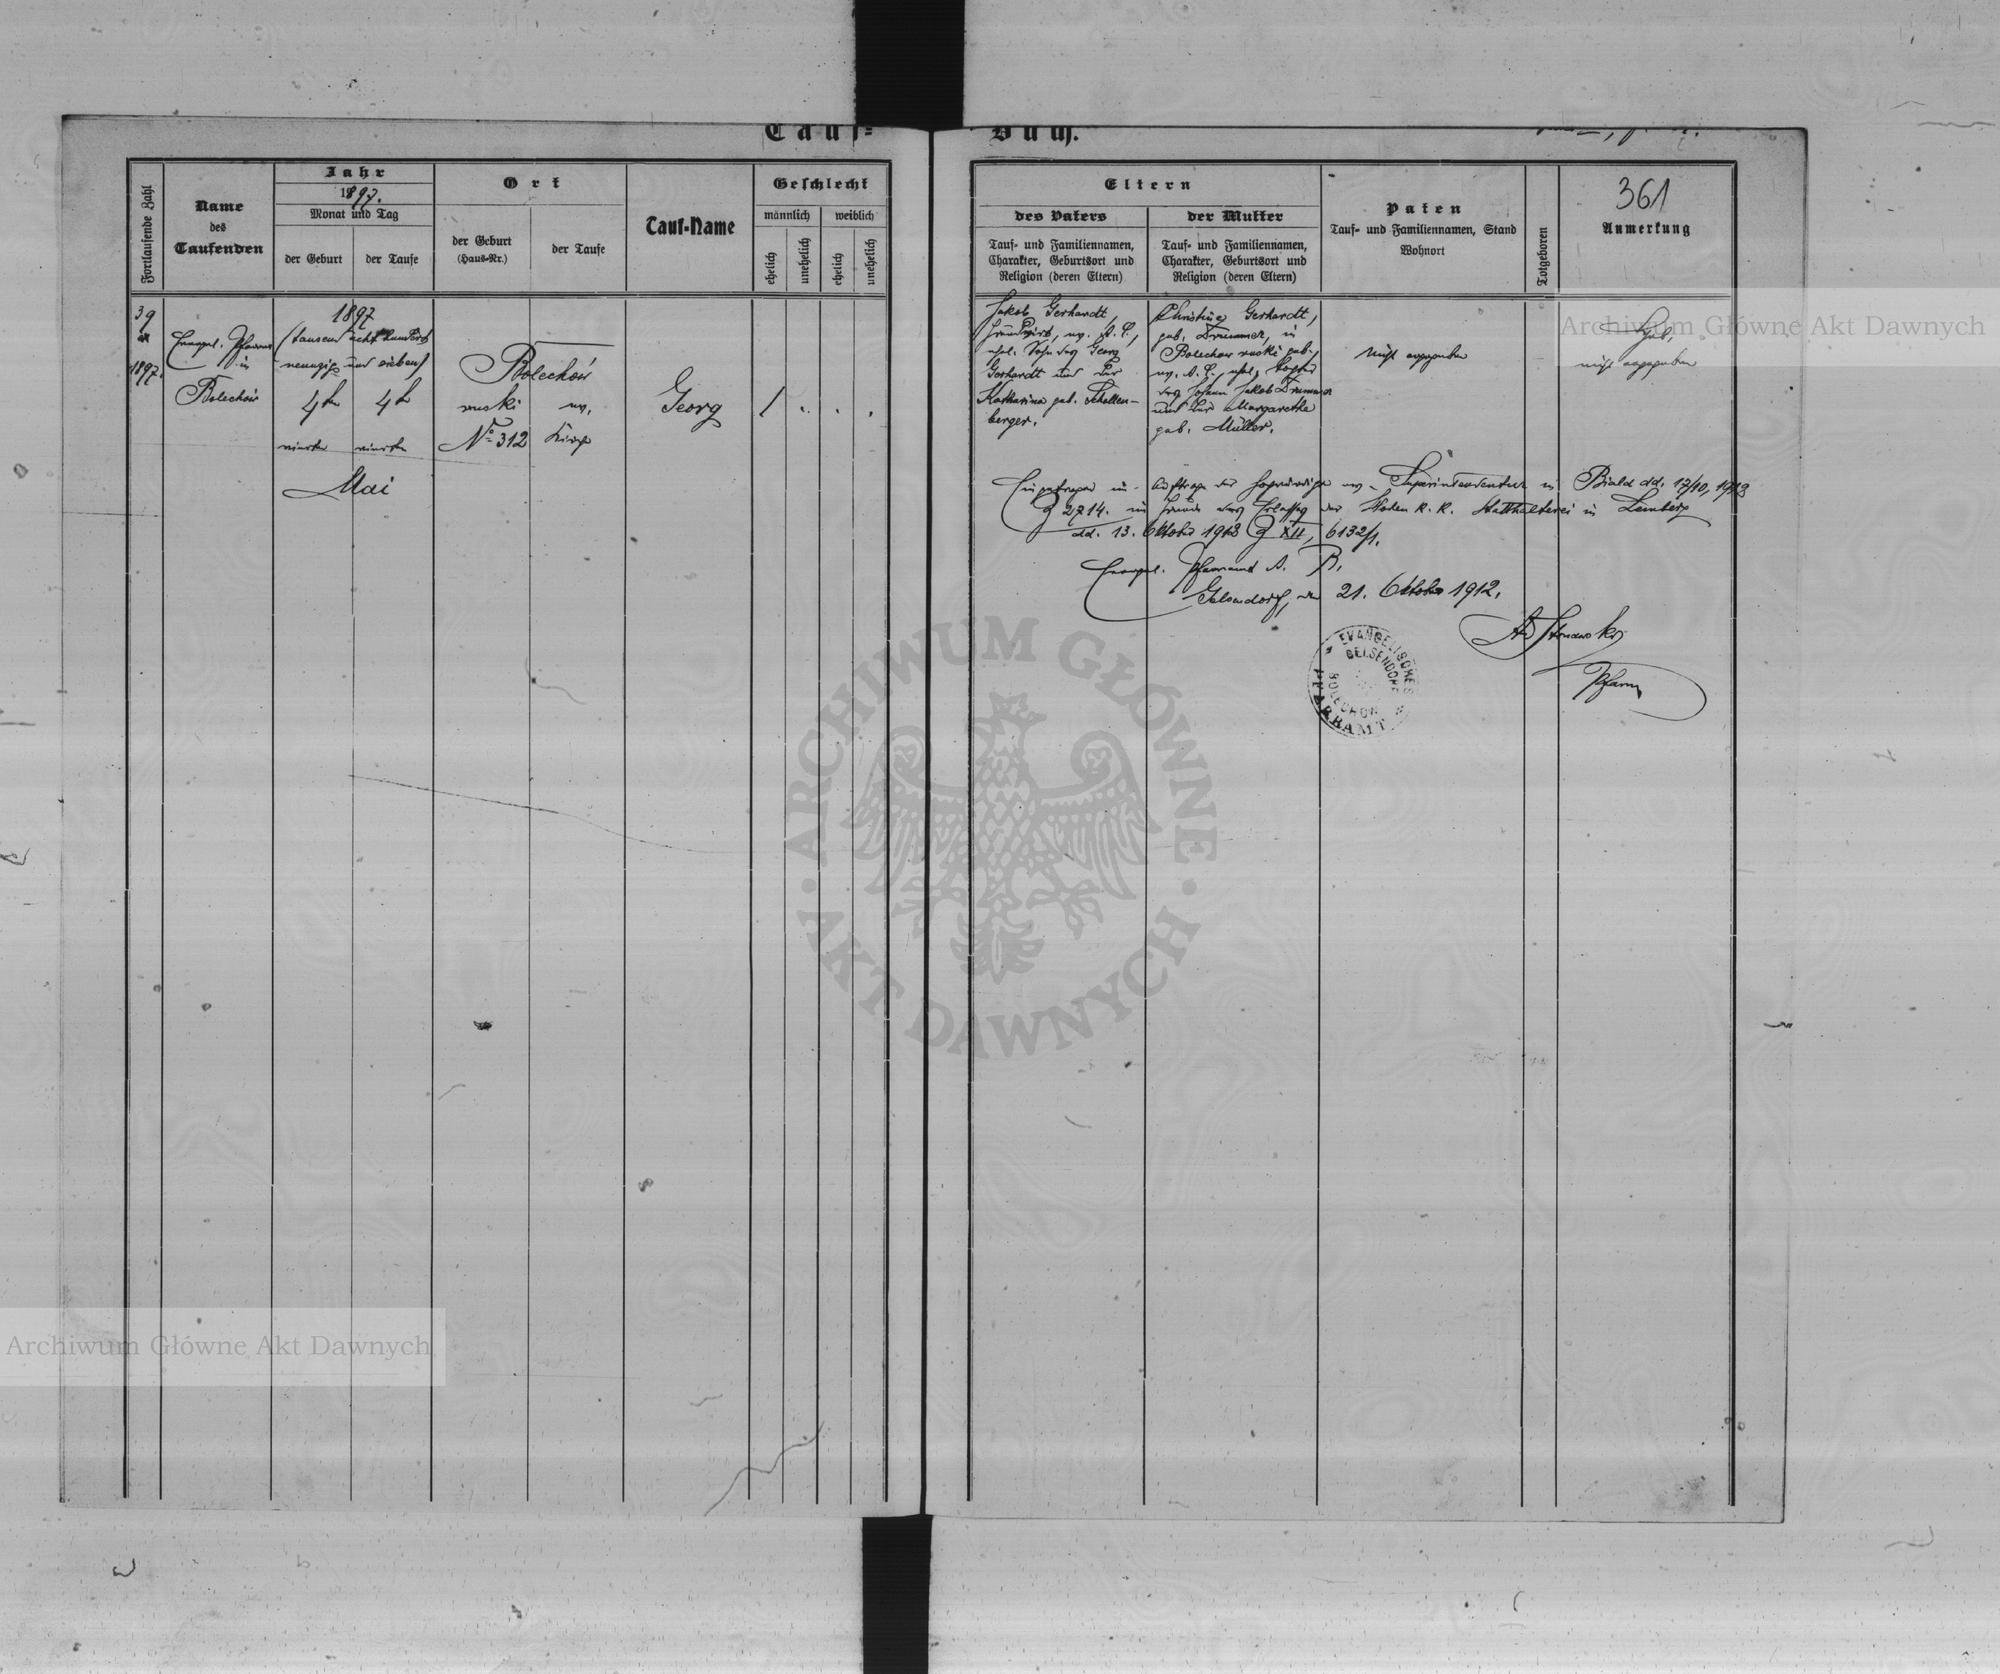 Tauf-
Buch.
Fortlaufende Zahl
Name
des
Taufenden
Jahr
1897.
Monat und Tag
der Geburt
der Taufe
Ort
der Geburt
(Haus-Nr.)
der Taufe
Tauf-Name
Geschlecht
männlich
weiblich
ehelich
unehelich
ehelich
unehelich
Eltern
des Vaters
der Mutter
Tauf- und Familiennamen,
Charakter, Geburtsort und
Religion (deren Eltern)
Tauf- und Familiennamen,
Charakter, Geburtsort und
Religion (deren Eltern)
Paten
Tauf- und Familiennamen, Stand
Wohnort
Totgeboren
361
Anmerkung
39
1897.
Evangel. Pfarrer
in
Bolechów
1897
(tausend acht hundert
neunzig und sieben)
4ten
4ten
vierten
vierten
Mai
Bolechów
ruski
ev.
No 312
Kirche
Georg
/
Jakob Gerhardt,
Grundwirt, ev. A. C.,
ehel. Sohn des Georg
Gerhardt und der
Katharina geb. Schollen-
berger.
Christine Gerhardt,
geb. Drummer, in
Bolechow ruski geb.,
ev. A. C., ehel. Tochter
des Johann Jakob Drummer
und der Margaretha
geb. Müller.
nicht angegeben
Heb.
nicht angegeben
Eingetragen im Auftrage der hochwürdigen ev. Superintendentur in Biala dd. 17/10, 1912
Z 2714. im Grunde des Erlasses der Hohen K. K. Statthalterei in Lemberg
dd. 13. Oktober 1912 Z XII, 6132/1.
Evangel. Pfarramt A. B.
Gelsendorf, den 21. Oktober 1912.
Pfarrer
EVANGELISCHES
GELSENDORF
BOLECHOW
PFARRAMT
Archiwum Główne Akt Dawnych
ARCHIWUM GŁÓWNE
AKT DAWNYCH
Archiwum Główne Akt Dawnych